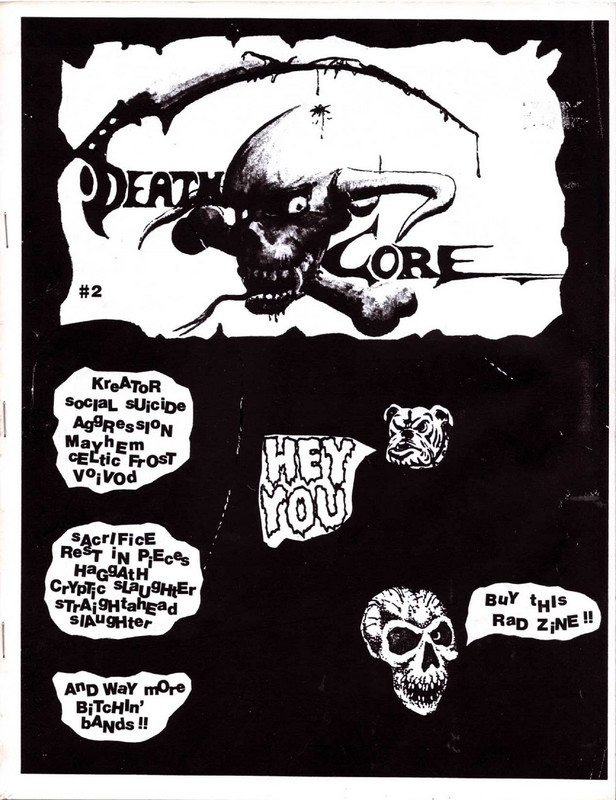 DEATH
CORE
#2
KreATOR
sociAL sUiciDe
AgGRessION
MayhEm
cELtic FrOsT
VOiVOd
sAcrIFicE
ResT iN PiEces
HaGgATH
CrYpTic sLaUgHtEr
sTrAigHtaHead
slAugHter
AnD WaY mOre
BiTcHIn'
bANds!!
HEY
YOU
BuY tHIs
RaD ZiNE!!